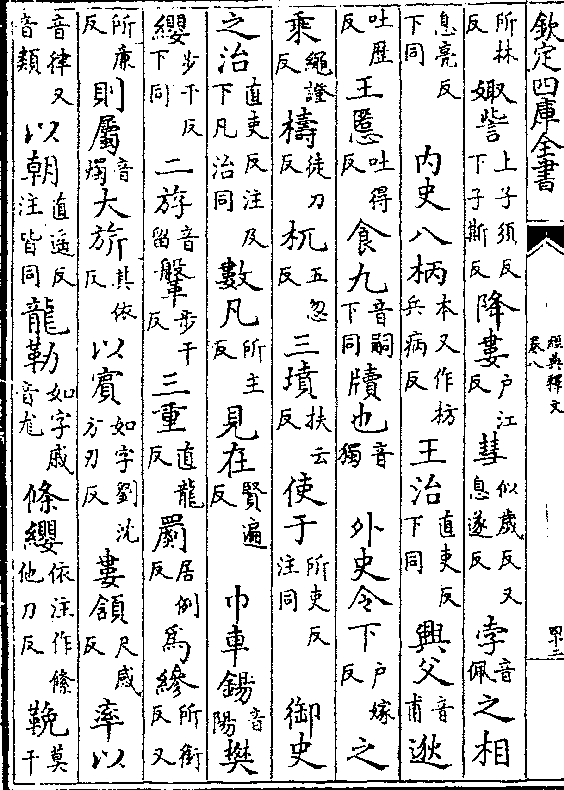 欽定四庫全書 經典釋文 卷八 四十二
所林反 娵訾上子須反下子斯反 降婁户江反 彗似歲反又息遂反 孛音佩 之相
息亮反下同 内史八柄本又作枋兵病反 王治直吏反下同 興父音甫 逖
吐歷反 王慝吐得反 食九音嗣下同 牘也音獨 外史令下户嫁反 之
乘繩證反 檮徒刀反 杌五忽反 三墳扶云反 使于所吏反注同 御史
之治直吏反注及下凡治同 數凡所主反 見在賢遍反 巾車鍚音陽 樊
纓步干反下同 二斿音留 鞶步干反 三重直龍反 罽居例反 為縿所銜反又
所廉反 則屬音燭 大旂其依反 以賓如字劉沈方刃反 婁頷尺感反 率以
音律又音類 以朝直遥反注皆同 龍勒如字戚音尨 條纓依注作絛他刀反 鞔莫干